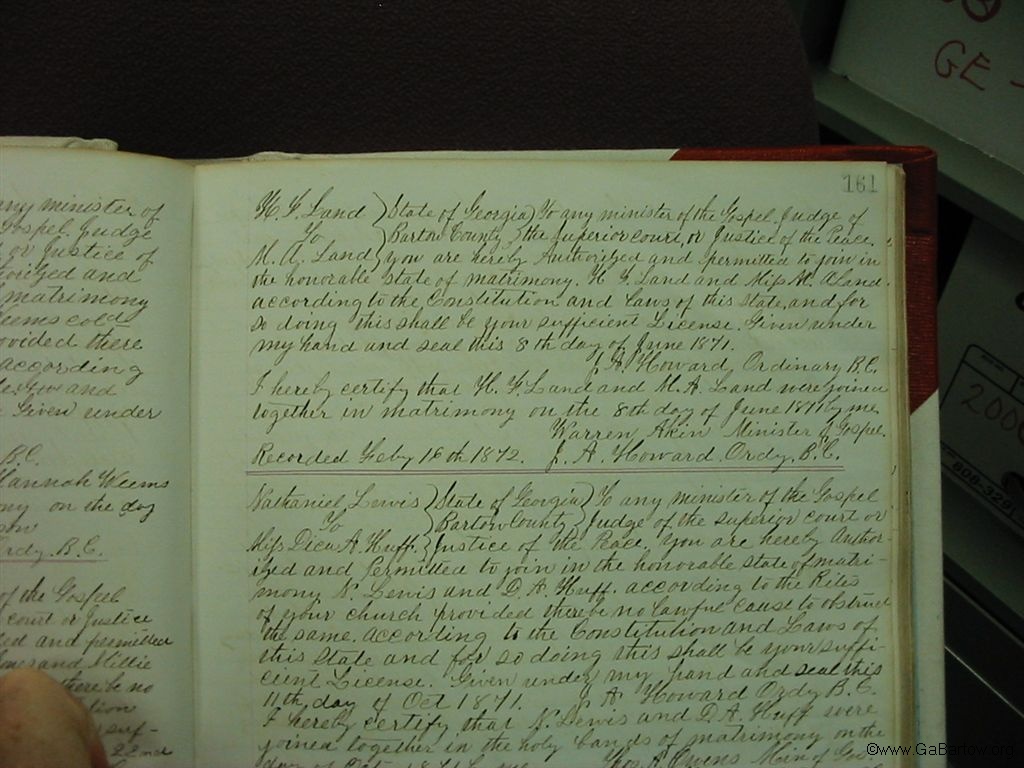 any minister of
Gospel Judge
or Justice of
and
matrimony
Weems cold
provided there
according
and
Given under
B.C.
Hannah Weems
on the day
Ordy. B.C.
of the Gospel
court or Justice
and permitted
and Millie
there be no
161
H. F. Land } State of Georgia } To any minister of the Gospel, Judge of
To } Bartow County } the Superior court, or Justice of the Peace.
M. A. Land } you are hereby Authorized and permitted to join in
the honorable state of matrimony. H F Land and Miss M. A Land.
according to the Constitution and laws of this State, and for
so doing this shall be your sufficient License. Given under
my hand and seal this 8th day of June 1871.
J. A. Howard, Ordinary B.C.
I hereby certify that H. F Land and M. A. Land were joined
together in matrimony on the 8th day of June 1871 by me.
Warren Akin Minister of Gospel.
Recorded Feby 16th 1872. J. A. Howard Ordy, B.C.
Nathaniel Lewis } State of Georgia } To any minister of the Gospel
To } Bartow County } Judge of the superior court or
Miss Dica A. Huff. } Justice of the Peace. you are hereby Author-
ized and permitted to join in the honorable state of matri-
mony N. Lewis and D. A. Huff. according to the Rites
of your church provided there be no lawful cause to obstruct
the same. according to the Constitution and Laws of
this State and for so doing this shall be your suffi-
cient License. Given under my hand and seal this
11th, day of Oct 1871. J. A. Howard Ordy B.C.
I hereby certify that N. Lewis and D. A. Huff were
joined together in the holy bands of matrimony on the
day of Oct 1871 A Owens Min of Gos-
GE -
200
808-3291
©www.GaBartow.org